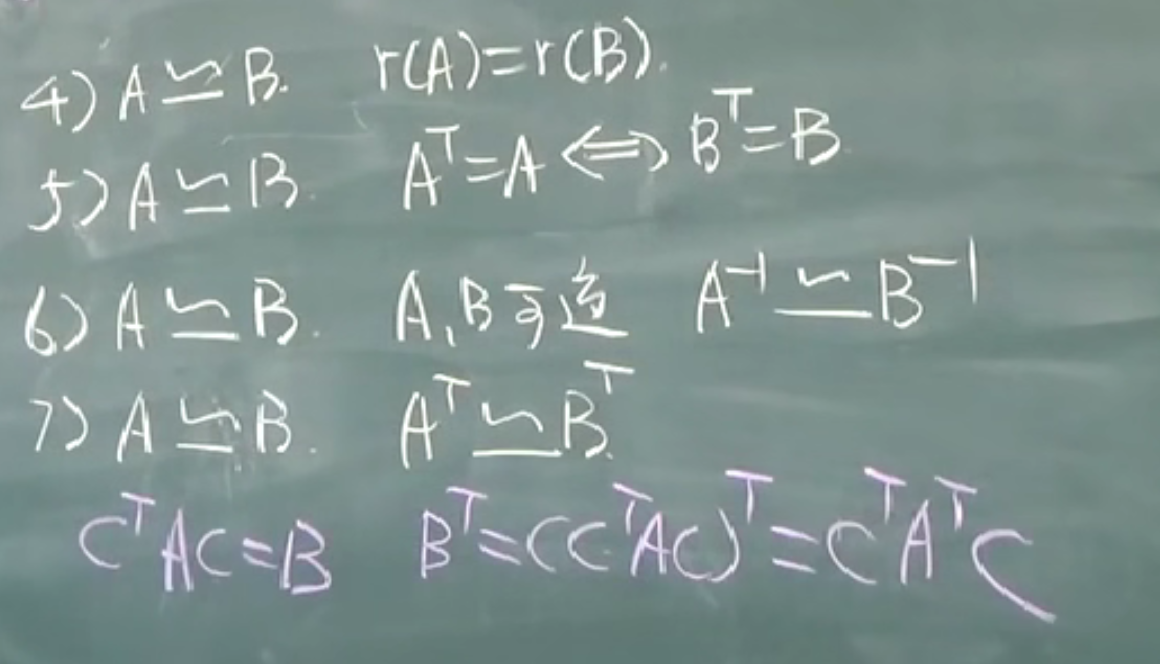 4) A ≃ B. r(A)=r(B).
5) A ≃ B. Aᵀ=A ⟺ Bᵀ=B.
6) A ≃ B. A,B可逆 A⁻¹ ≃ B⁻¹
7) A ≃ B. Aᵀ ≃ Bᵀ.
CᵀAC=B Bᵀ=(CᵀAC)ᵀ=CᵀAᵀC